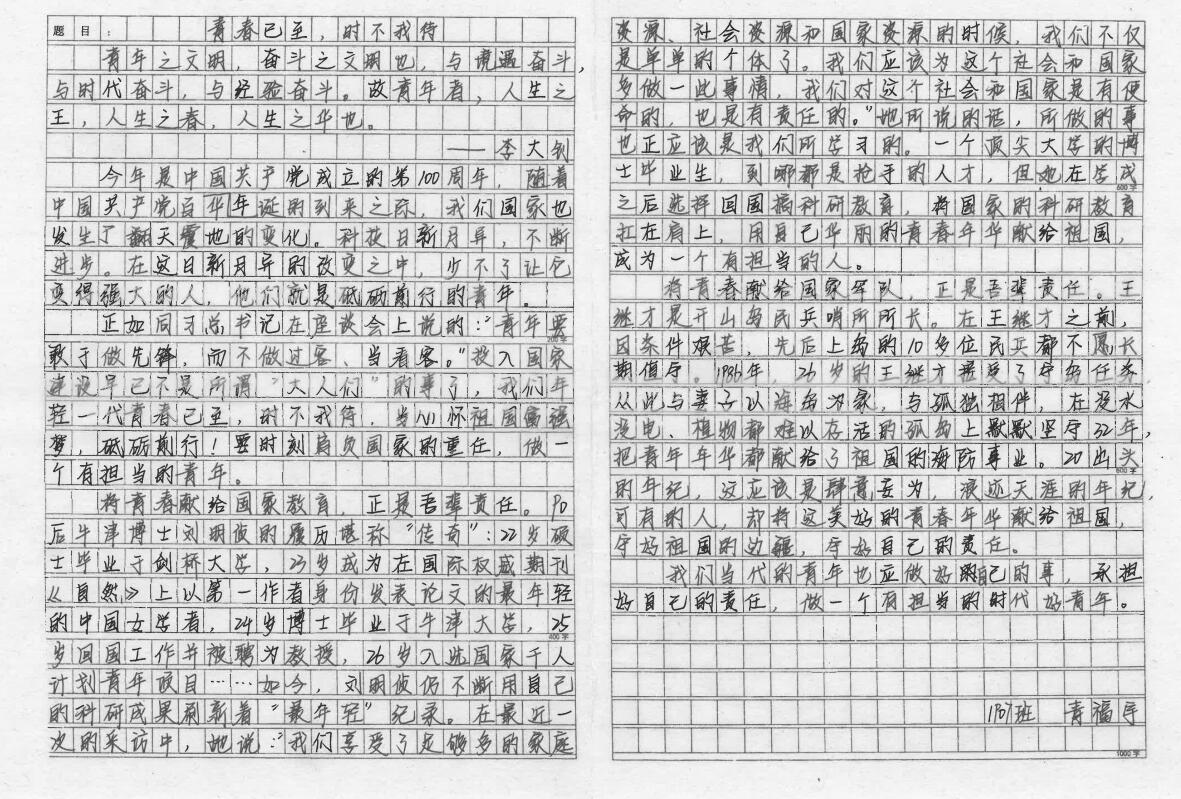 题目: 青春已至，时不我待
青年之文明，奋斗之文明也，与境遇奋斗，
与时代奋斗，与经验奋斗。故青年者，人生之
王，人生之春，人生之华也。
——李大钊
今年是中国共产党成立的第100周年，随着
中国共产党百华年诞的到来之际，我们国家也
发生了翻天覆地的变化。科技日新月异，不断
进步。在这日新月异的改变之中，少不了让它
变得强大的人，他们就是砥砺前行的青年。
正如同习总书记在座谈会上说的：“青年要
200字
敢于做先锋，而不做过客、当看客。”投入国家
建设早已不是所谓“大人们”的事了，我们年
轻一代青春已至，时不我待，当心怀祖国富强
梦，砥砺前行！要时刻肩负国家的重任，做一
个有担当的青年。
将青春献给国家教育，正是吾辈责任。90
后牛津博士刘明侦的履历堪称“传奇”：22岁硕
士毕业于剑桥大学，23岁成为在国际权威期刊
《自然》上以第一作者身份发表论文的最年轻
的中国女学者，24岁博士毕业于牛津大学，25
400字
岁回国工作并被聘为教授，26岁入选国家千人
计划青年项目……如今，刘明侦仍不断用自己
的科研成果刷新着“最年轻”纪录。在最近一
次的采访中，她说：“我们享受了足够多的家庭
资源、社会资源和国家资源的时候，我们不仅
是单单的个体了。我们应该为这个社会和国家
多做一些事情，我们对这个社会和国家是有使
命的，也是有责任的。”她所说的话，所做的事
也正应该是我们所学习的。一个顶尖大学的博
士毕业生，到哪都是抢手的人才，但她在学成
600字
之后选择回国搞科研教育，将国家的科研教育
扛在肩上，用自己华丽的青春年华献给祖国，
成为一个有担当的人。
将青春献给国家军队，正是吾辈责任。王
继才是开山岛民兵哨所所长。在王继才之前，
因条件艰苦，先后上岛的10多位民兵都不愿长
期值守。1986年，26岁的王继才接受了守岛任务，
从此与妻子以海岛为家，与孤独相伴，在没水
没电、植物都难以存活的孤岛上默默坚守32年，
把青年年华都献给了祖国的海防事业。20出头
800字
的年纪，这应该是肆意妄为，浪迹天涯的年纪，
可有的人，却将这美好的青春年华献给祖国，
守好祖国的边疆，守好自己的责任。
我们当代的青年也应做好自己的事，承担
好自己的责任，做一个有担当的时代好青年。
1907班 青福宇
1000字